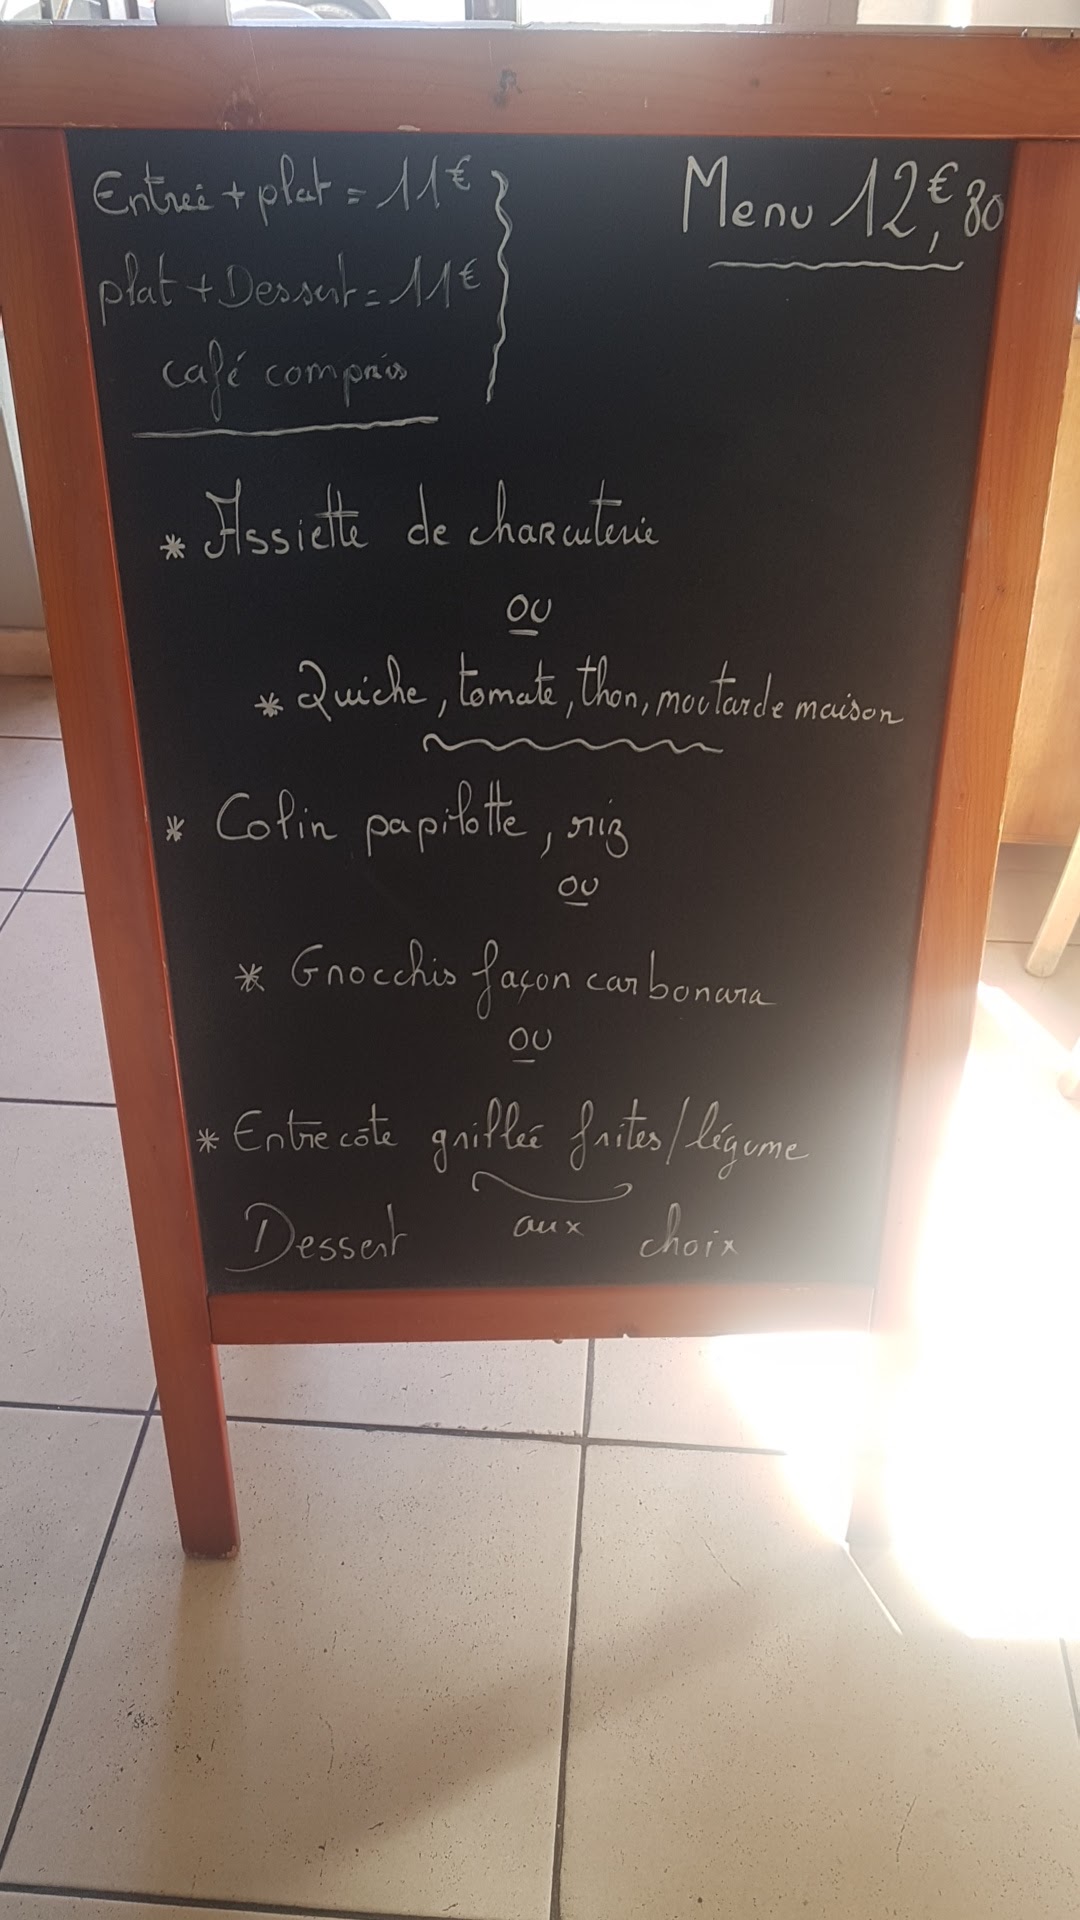 Entreé + plat = 11€
plat + Dessert = 11€
café compris
Menu 12,€80
* Assiette de charcuterie
ou
* Quiche, tomate, thon, moutarde maison
* Colin papilotte, riz
ou
* Gnocchis façon carbonara
ou
* Entrecôte grilleé frites/légume
Dessert aux choix